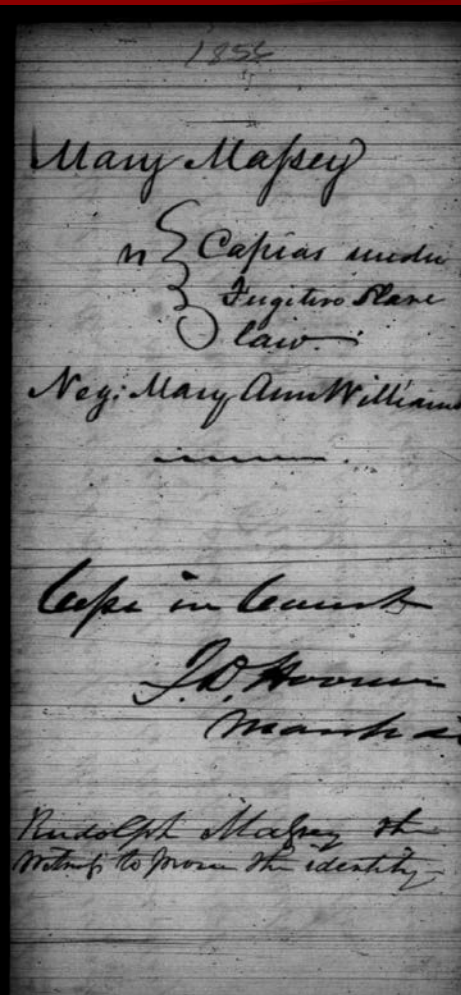 1856
Mary Massey
vs Capias under
Fugitive Slave
law.
Neg: Mary Ann Williams
Cepi in Court
J.D. Hoover
Marshal
Rudolph Massey the
Witness to prove the identity